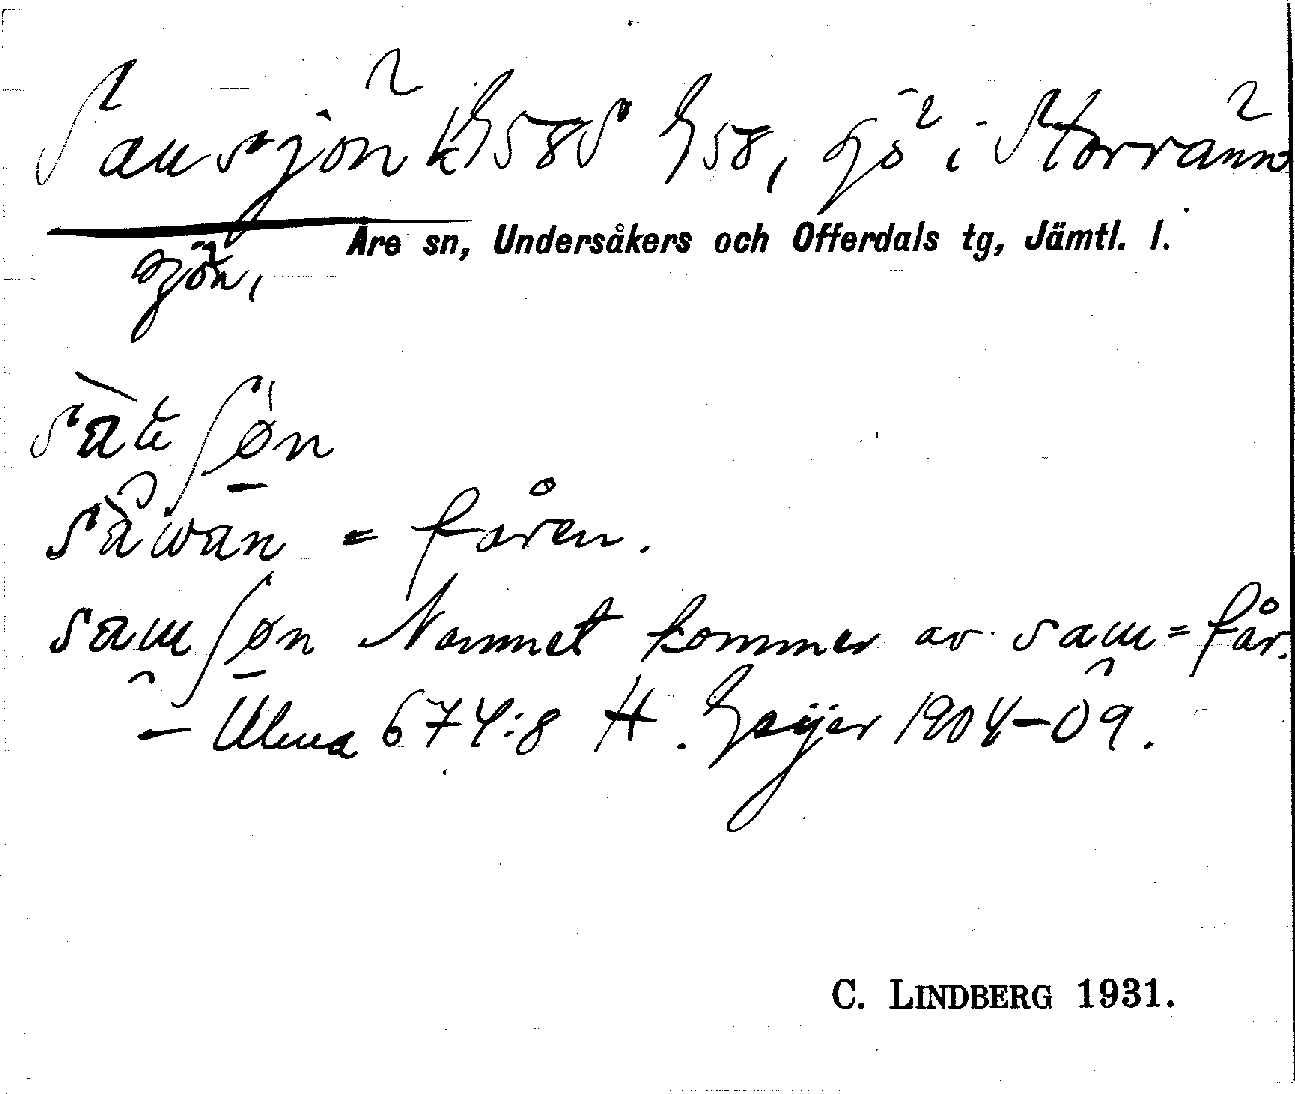 Sausjön k G58S G58, sjö i Storränn
sjön,
Åre sn, Undersåkers och Offerdals tg, Jämtl. l.
sàu̯ ʃøn
såwan = fåren.
sau ʃøn Namnet kommer av sau = får.
— Ulma 674:8 H. Geijer 1904–09.
C. LINDBERG 1931.